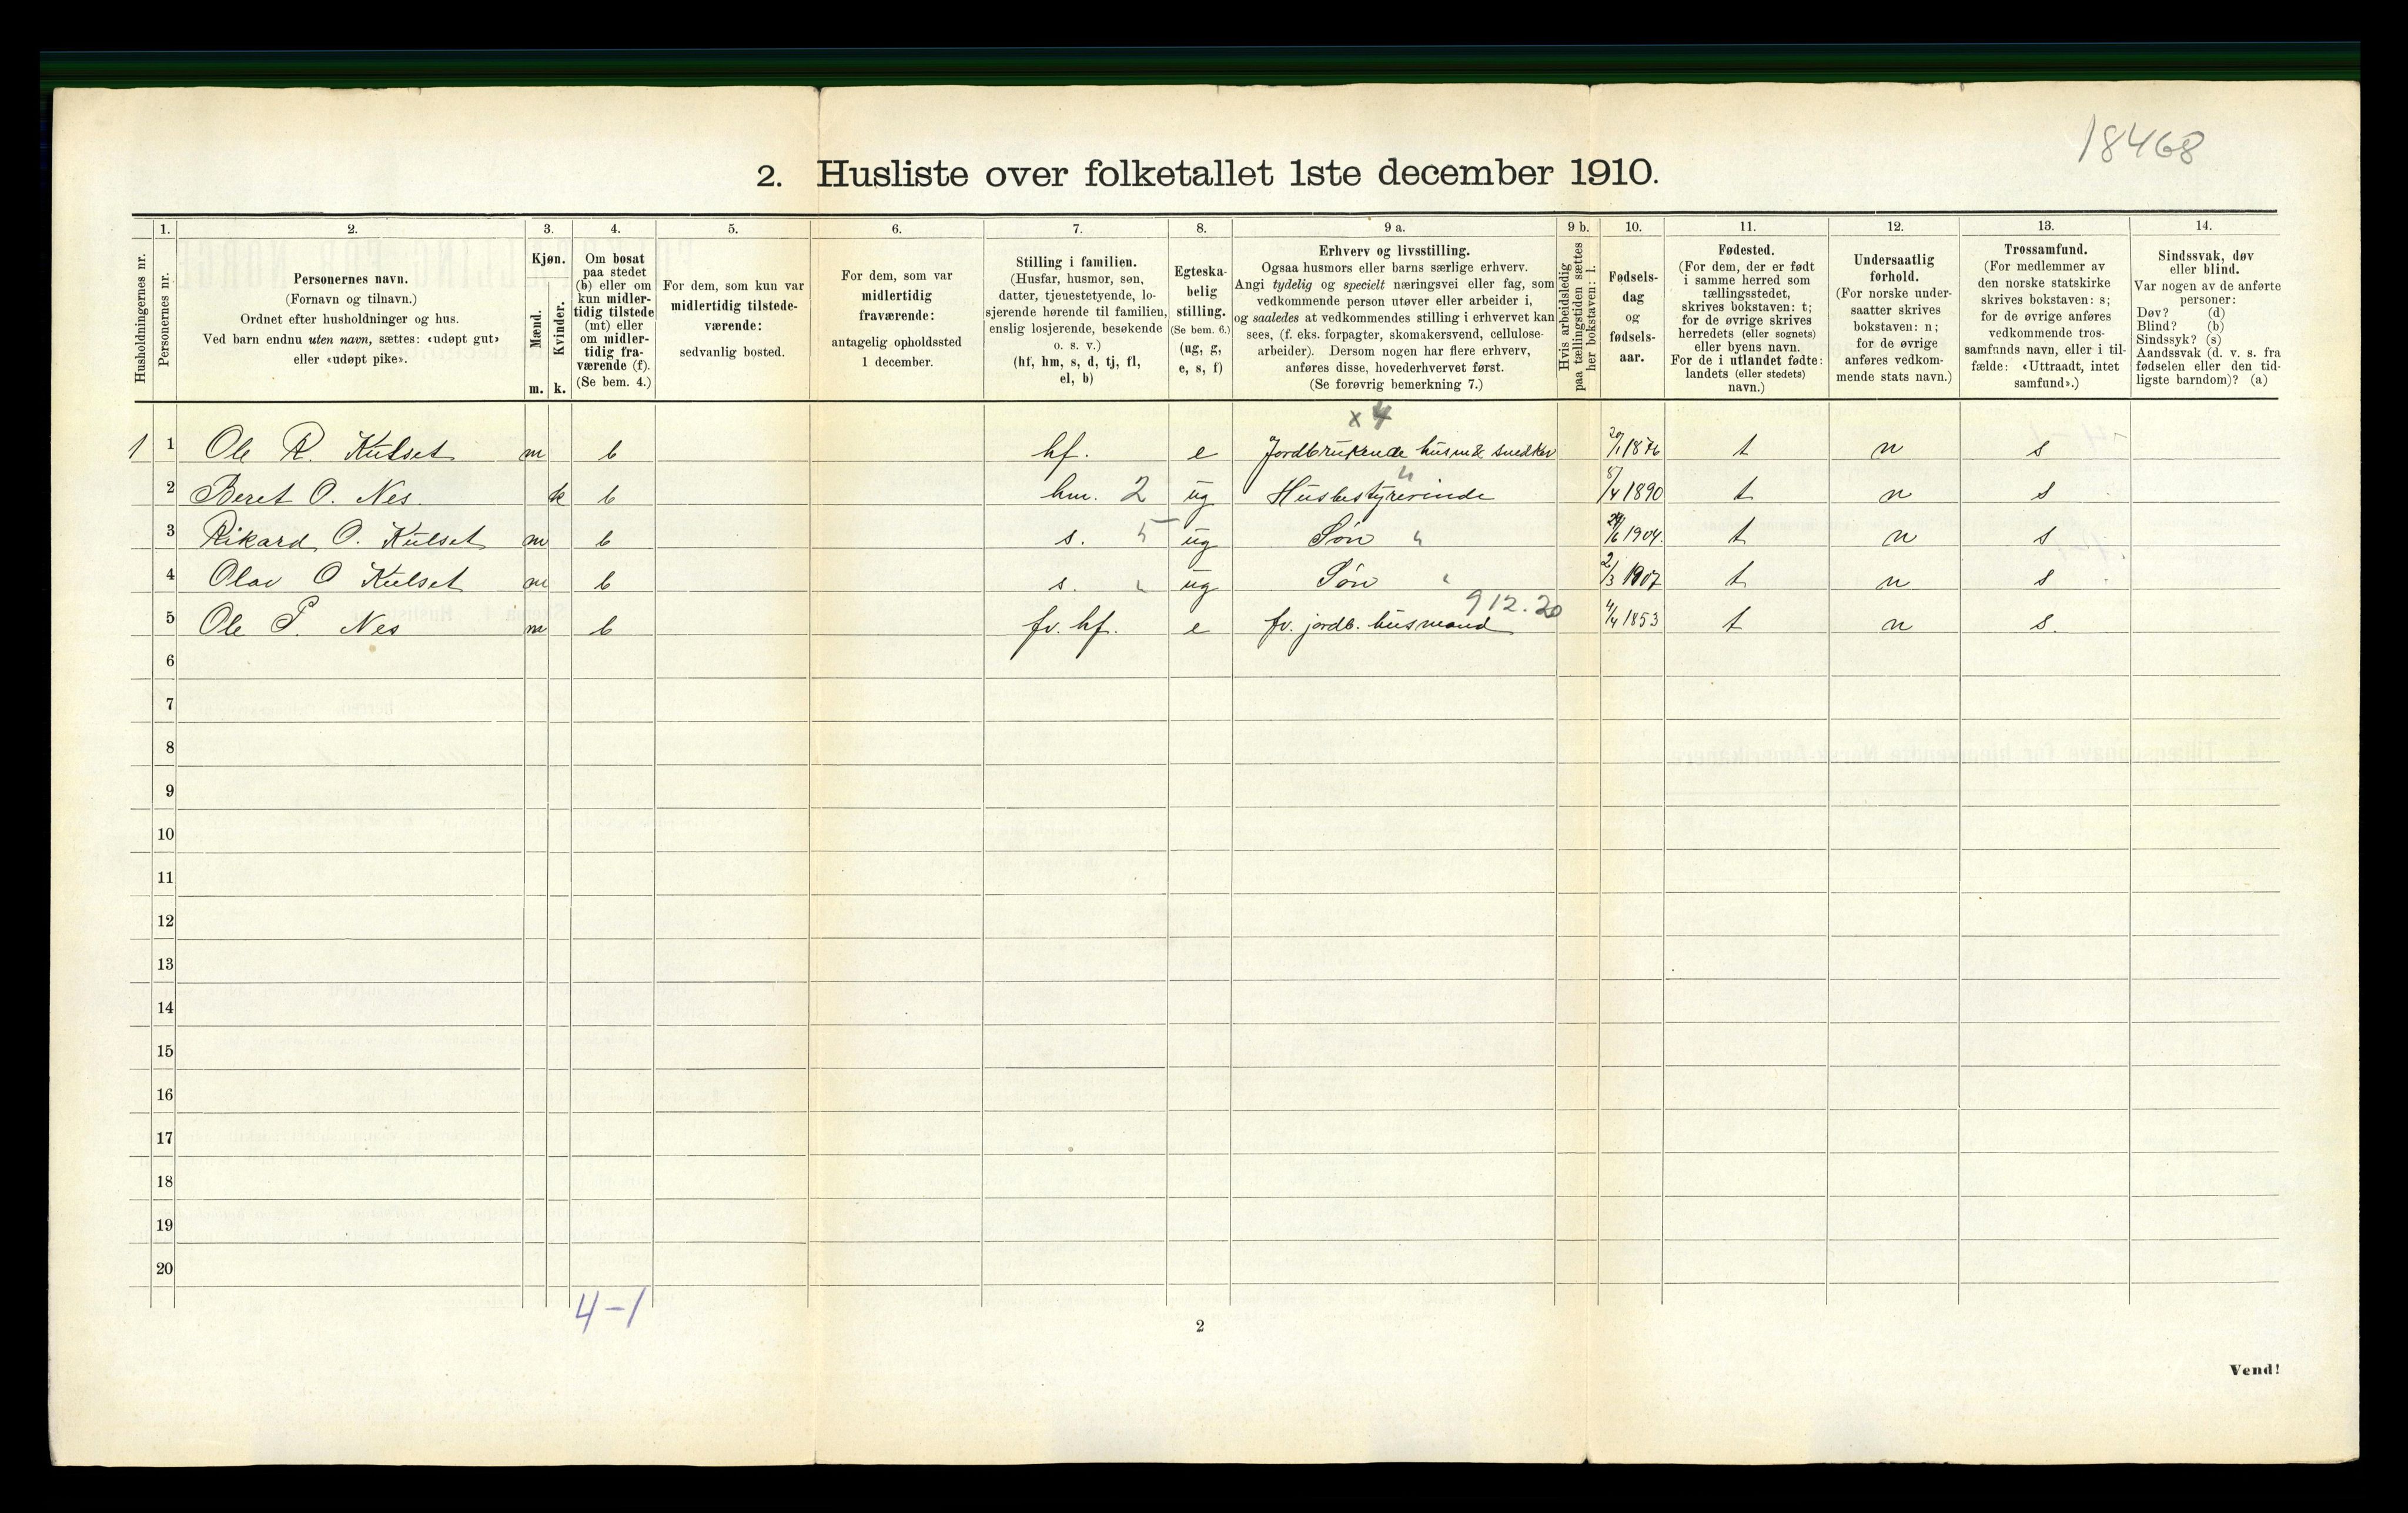 18468
2. Husliste over folketallet 1ste december 1910.
Husholdningernes nr.
1. Personernes nr.
2. Personernes navn. (Fornavn og tilnavn.) Ordnet efter husholdninger og hus. Ved barn endnu uten navn, sættes: «udøpt gut» eller «udøpt pike».
3. Kjøn. Mænd. m. Kvinder. k.
4. Om bosat paa stedet (b) eller om kun midlertidig tilstede (mt) eller om midlertidig fraværende (f). (Se bem. 4.)
5. For dem, som kun var midlertidig tilstedeværende: sedvanlig bosted.
6. For dem, som var midlertidig fraværende: antagelig opholdssted 1 december.
7. Stilling i familien. (Husfar, husmor, søn, datter, tjenestetyende, losjerende hørende til familien, enslig losjerende, besøkende o. s. v.) (hf, hm, s, d, tj, fl, el, b)
8. Egteskabelig stilling. (Se bem. 6.) (ug, g, e, s, f)
9 a. Erhverv og livsstilling. Ogsaa husmors eller barns særlige erhverv. Angi tydelig og specielt næringsvei eller fag, som vedkommende person utøver eller arbeider i, og saaledes at vedkommendes stilling i erhvervet kan sees, (f. eks. forpagter, skomakersvend, cellulosearbeider). Dersom nogen har flere erhverv, anføres disse, hovederhvervet først. (Se forøvrig bemerkning 7.)
9 b. Hvis arbeidsledig paa tællingstiden sættes her bokstaven: l.
10. Fødselsdag og fødselsaar.
11. Fødested. (For dem, der er født i samme herred som tællingsstedet, skrives bokstaven: t; for de øvrige skrives herredets (eller sognets) eller byens navn. For de i utlandet fødte: landets (eller stedets) navn.)
12. Undersaatlig forhold. (For norske undersaatter skrives bokstaven: n; for de øvrige anføres vedkommende stats navn.)
13. Trossamfund. (For medlemmer av den norske statskirke skrives bokstaven: s; for de øvrige anføres vedkommende trossamfunds navn, eller i tilfælde: «Uttraadt, intet samfund».)
14. Sindssvak, døv eller blind. Var nogen av de anførte personer: Døv? (d) Blind? (b) Sindssyk? (s) Aandssvak (d. v. s. fra fødselen eller den tidligste barndom)? (a)
x 4
1 1 Ole R. Kulset m b hf. e Jordbrukende husm & snedker 20/1 1876 t n s
2 Beret O. Nes. k b hm. 2 ug Husbestyrerinde 8/4 1890 t n s
3 Rikard O. Kulset m b s. 5 ug Søn 1904 t n s
4 Olav O Kulset m b s. ug Søn 2/3 1907 t n s
912.20
5 Ole P. Nes m b fv. hf. e fv. jordb. husmand 4/4 1853 t n s.
6
7
8
9
10
11
12
13
14
15
16
17
18
19
20
4-1
2
Vend!